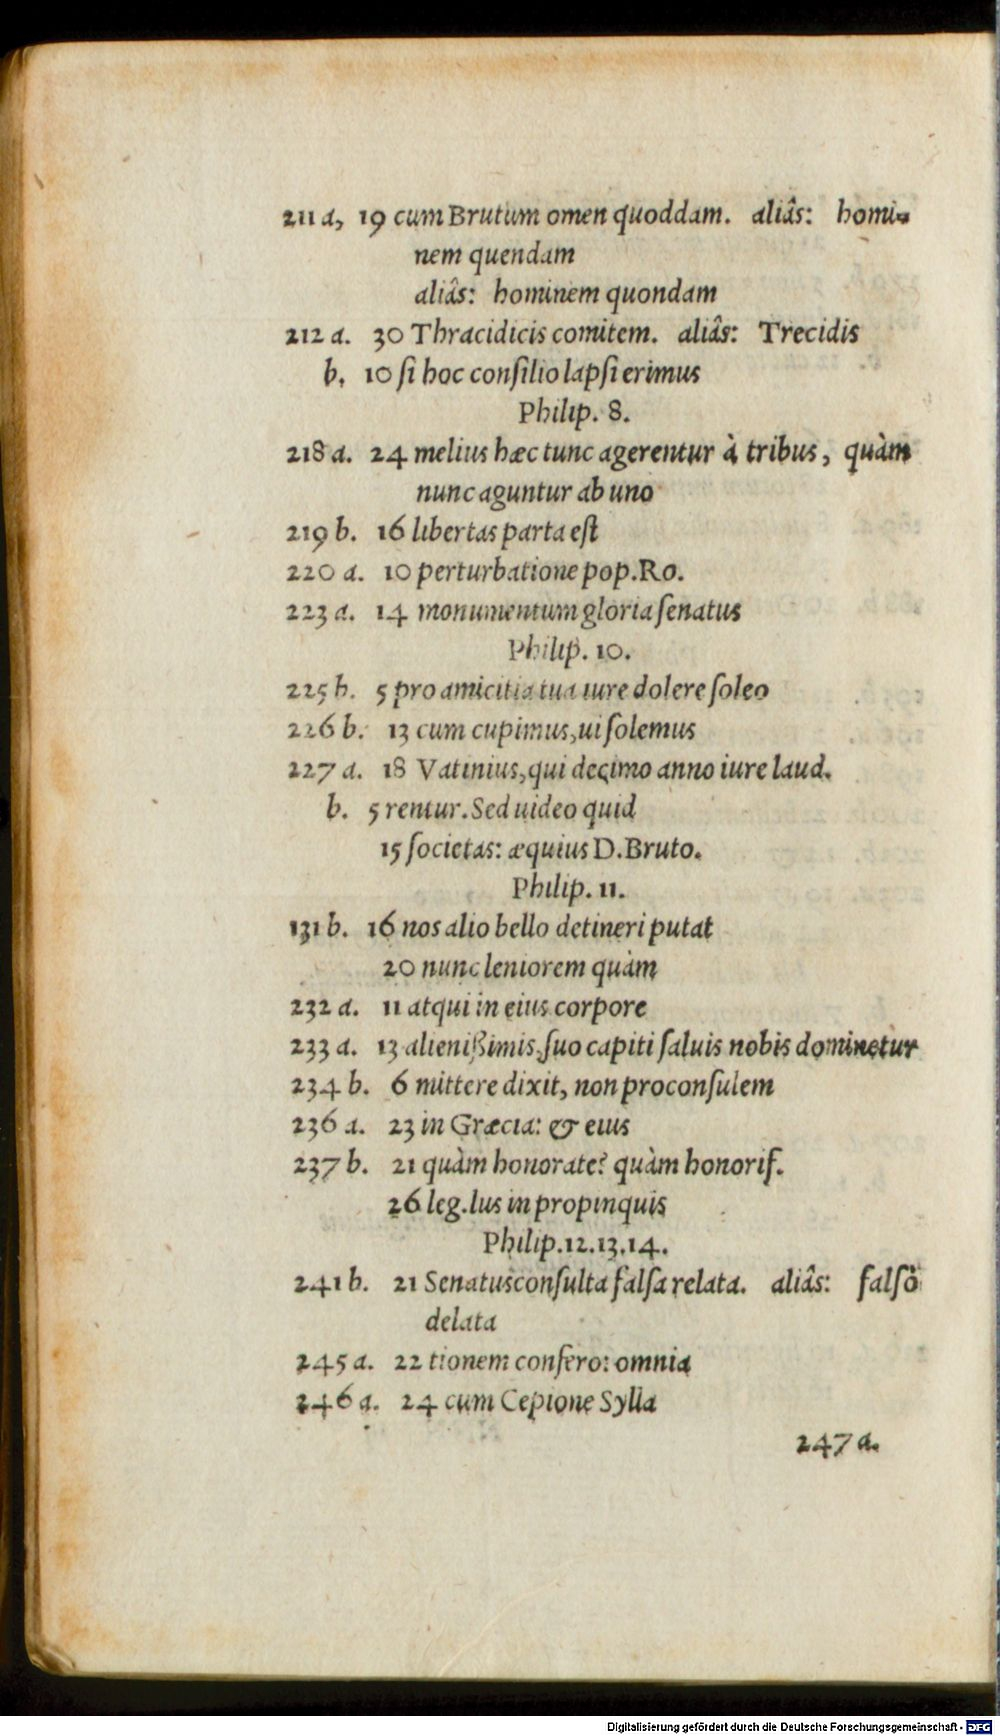 211 a, 19 cum Brutum omen quoddam. aliâs: homi-
nem quendam
aliâs: hominem quondam
212 a. 30 Thracidicis comitem. aliâs: Trecidis
b. 10 ſi hoc conſilio lapſi erimus
Philip. 8.
218 a. 24 melius hæc tunc agerentur à tribus, quàm
nunc aguntur ab uno
219 b. 16 libertas parta eſt
220 a. 10 perturbatione pop.Ro.
223 a. 14 monumentum gloria ſenatus
Philip. 10.
225 b. 5 pro amicitia tua iure dolere ſoleo
226 b. 13 cum cupimus, ui ſolemus
227 a. 18 Vatinius, qui decimo anno iure laud.
b. 5 rentur. Sed uideo quid
15 ſocietas: æquius D.Bruto.
Philip. 11.
131 b. 16 nos alio bello detineri putat
20 nunc leniorem quàm
232 a. 11 atqui in eius corpore
233 a. 13 alienißimis, ſuo capiti ſaluis nobis dominetur
234 b. 6 mittere dixit, non proconſulem
236 a. 23 in Græcia: & eius
237 b. 21 quàm honorate? quàm honorif.
26 leg.lus in propinquis
Philip.12.13.14.
241 b. 21 Senatusconſulta falſa relata. aliâs: falſò
delata
245 a. 22 tionem confero: omnia
246 a. 24 cum Cepione Sylla
247 a.
Digitalisierung gefördert durch die Deutsche Forschungsgemeinschaft - DFG